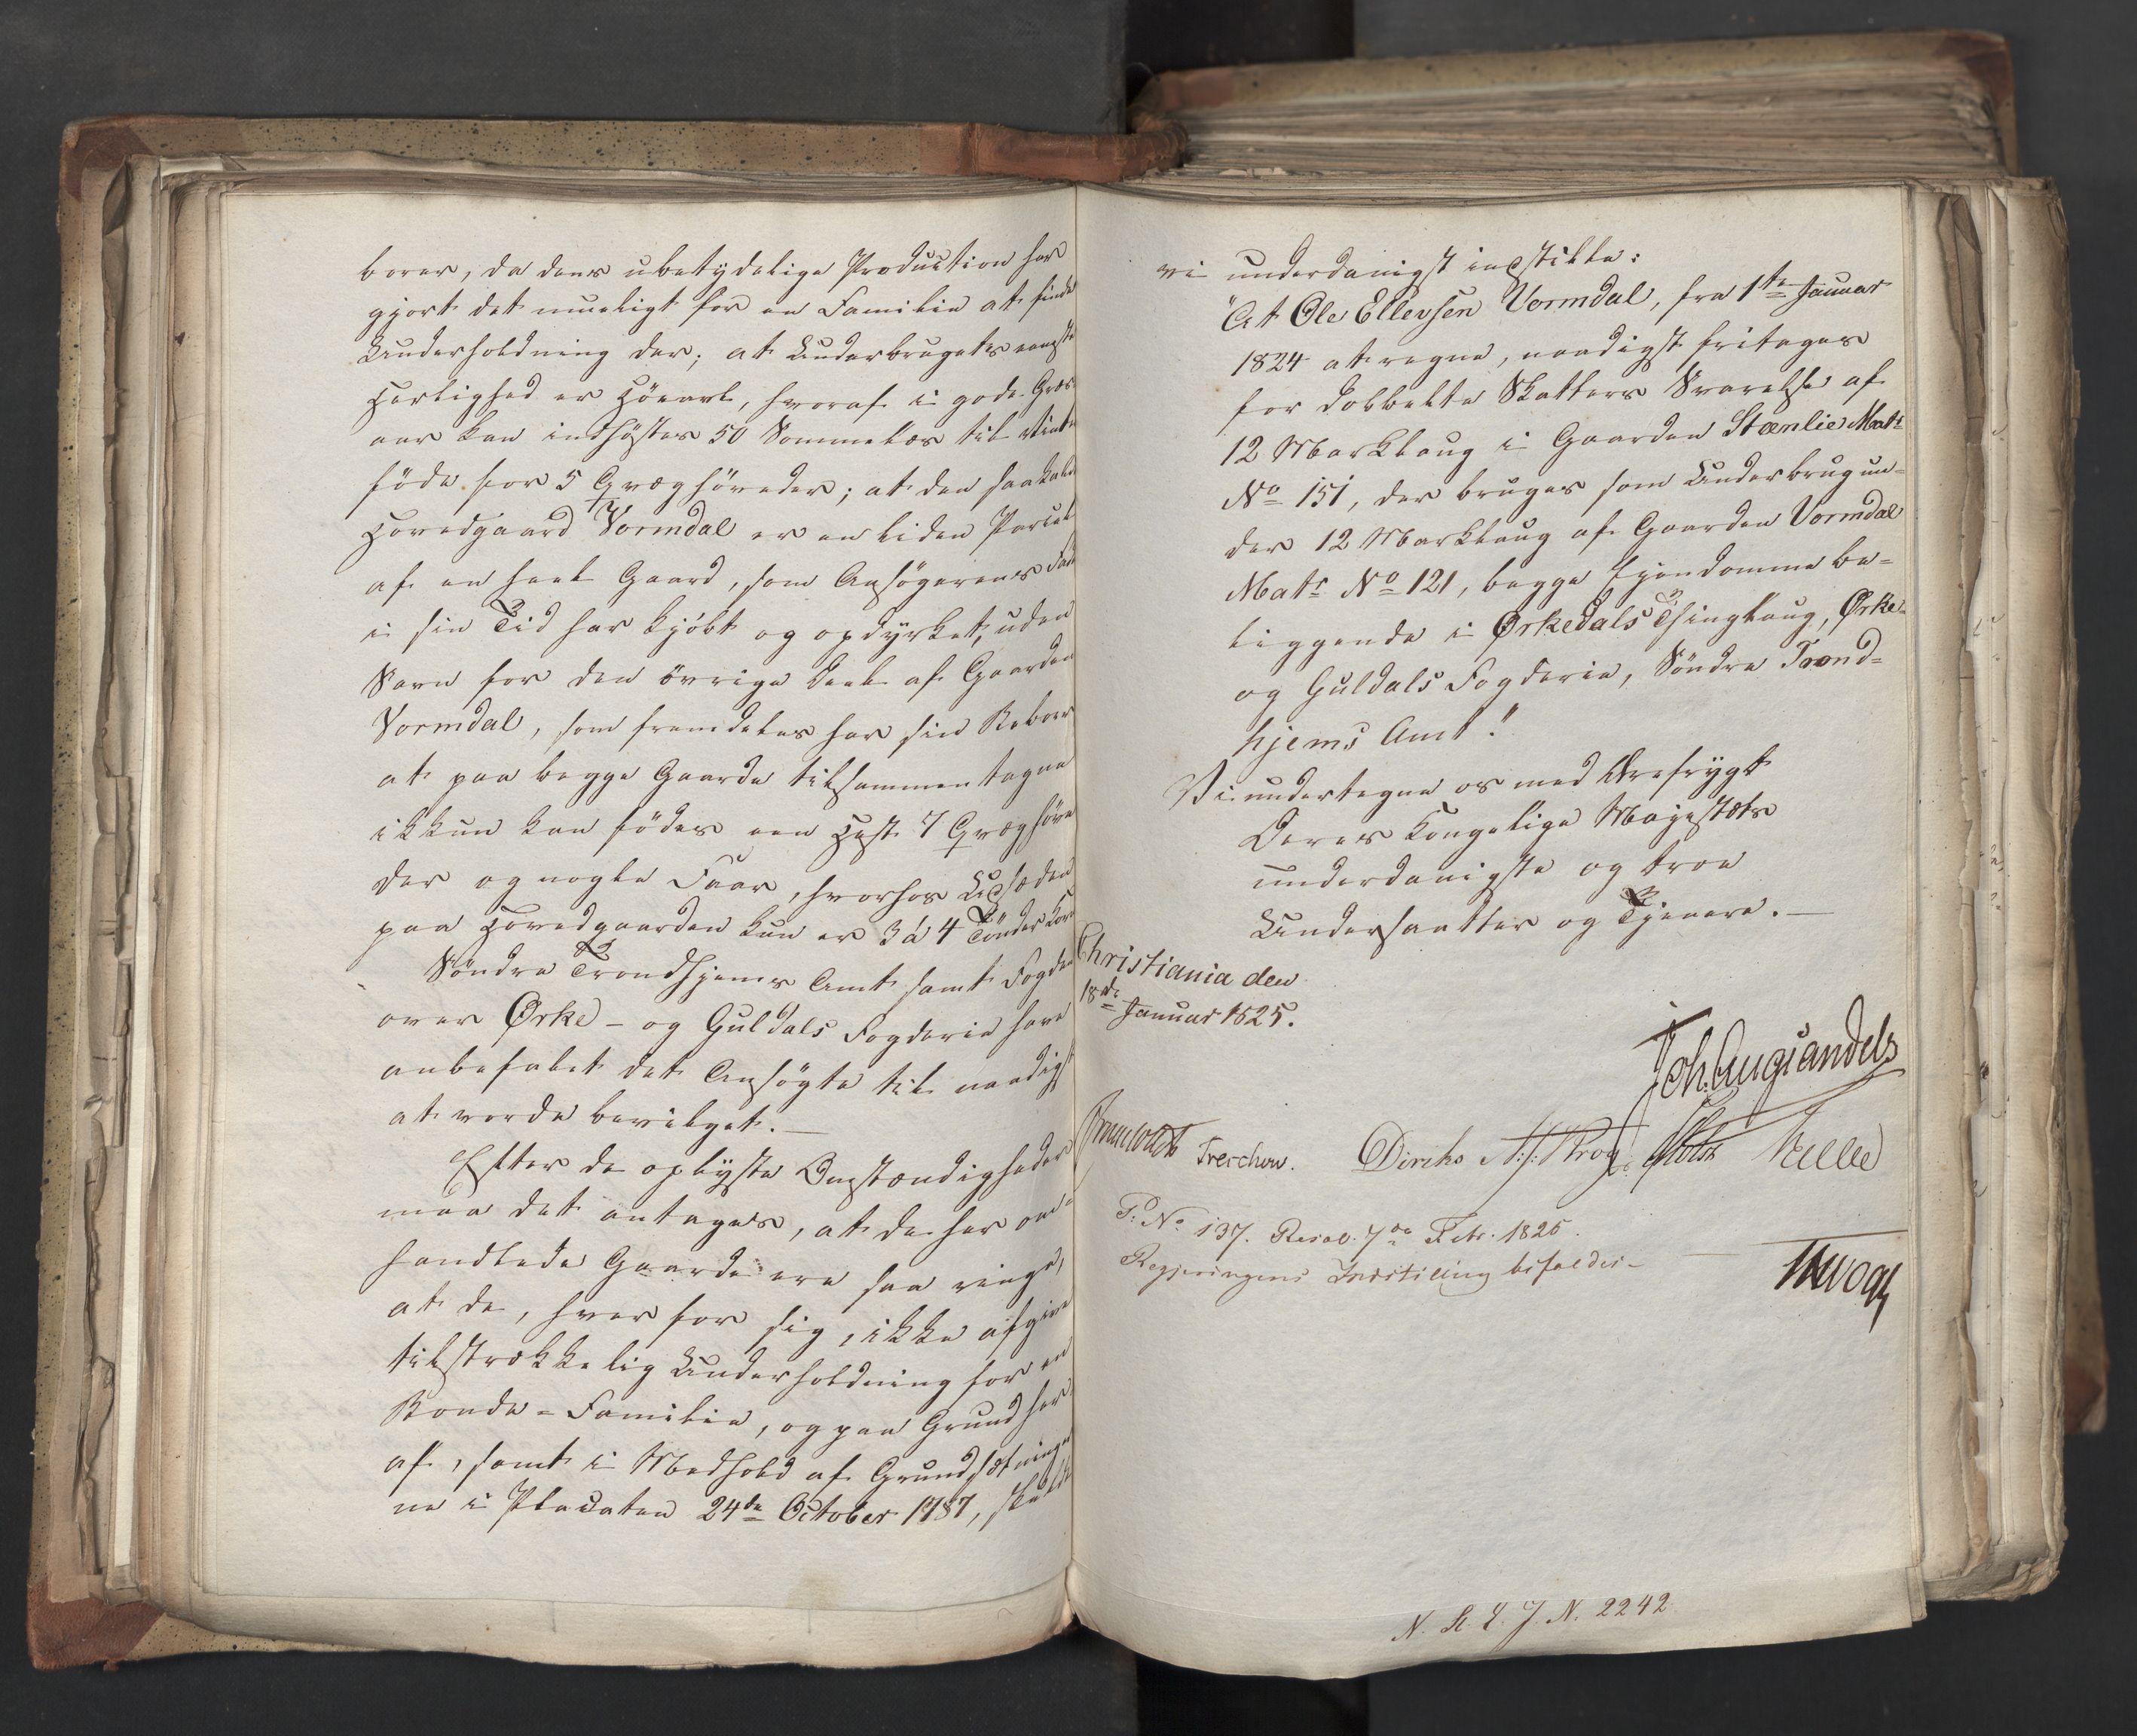 boere, da dens ubetydelige Production har
gjort det mueligt for en Familie at finde
Underholdning der; at Underbrugets eneste
Herlighed er Höeavl, hvoraf i gode Græs
aar kan indhöstes 50 Sommelæs til Vinter
föde for 5 Qvæghöveder; at den saakaldte
Hovedgaard Vormdal er en liden Parcel
af en heel Gaard, som Ansögerens Fader
i sin Tid har kjöbt og opdyrket, uden
Savn for den övrige Deel af Gaarden
Vormdal, som fremdeles har sin Beboer
at paa begge Gaarde tilsammentagne
ikkun kan födes een Hest 7 Qvæghöve
der og nogle Faar, hvorhos Udsæden
paa Hovedgaarden kun er 3 à 4 Tönder Korn
Söndre Trondhjems Amt samt Fogden
over Ørke- og Guldals Fogderie have
anbefalet det Ansögte til naadigst
at vorde bevilget.—
Efter de oplyste Omstændigheder
maa det antages, at de her om-
handlede Gaarde ere saa ringe,
at de, hver for sig, ikke afgive
tilstrækkelig Underholdning for en
Bonde-Familie, og paa Grund her
af, samt i Medhold af Grundsætninger
ne i Placaten 24de October 1787, skulde
vi underdanigst indstille:
"At Ole Ellevsen Vormdal, fra 1te Januar
1824 at regne, naadigst fritages
for dobbelte Skatters Svarelse af
12 Marklaug i Gaarden Stænlie Matr
No 151, der bruges som Underbrug un-
der 12 Marklaug af Gaarden Vormdal
Matr No 121, begge Eiendomme be-
liggende i Ørkedals Thinglaug, Ørke-
og Guldals Fogderie, Söndre Trond-
hjems Amt."
Vi undertegne os med Ærefrygt
Deres Kongelige Majestæts
underdanigste og troe
Undersaatter og Tjenere.—
Christiania den
18de Januar 1825.
Joh. Aug Sandels
Treschow. Diriks
P. No 137. Resol. 7de Febr. 1825.
Regjeringens Indstilling bifaldes—
N. R. L. J. N. 2242